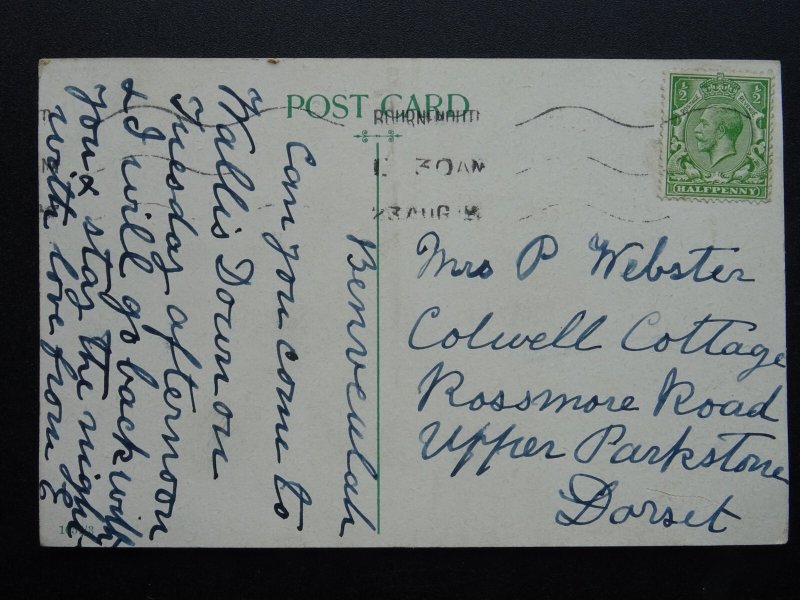 POST CARD
BOURNEMOUTH
30 AM
23 AUG
½ ½
HALFPENNY
Benveulah
Can you come to
Wallis Down on
Tuesday afternoon
& I will go back with
you & stay the night
with love from E
Mrs P Webster
Colwell Cottage
Rossmore Road
Upper Parkstone
Dorset